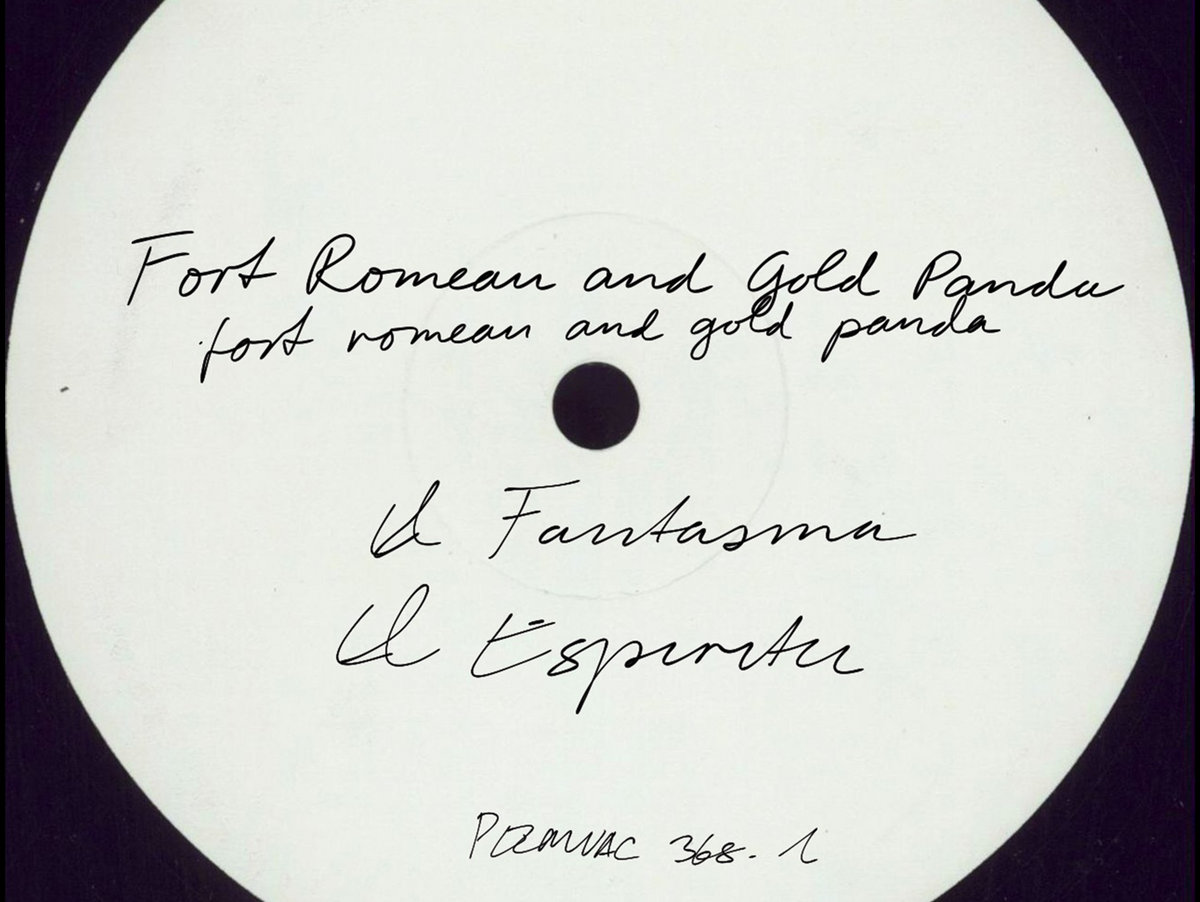 Fort Romeau and Gold Panda
fort romeau and gold panda
El Fantasma
El Espiritu
PERMVAC 368-1